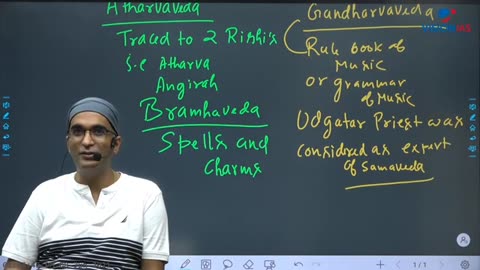 Atharvaveda
Traced to 2 Rishi's
i.e Atharva
Angirah
Bramhaveda
Spells and
Charms
Gandharvaveda
Rule book of
Music
or grammar
of Music
Udgatar Priest was
considered as expert
of Samaveda
1/1